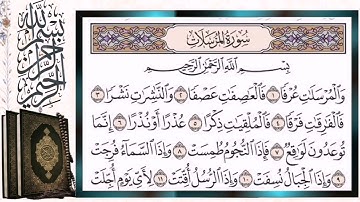 سُورَةُ المُرۡسَلَاتِ
بِسۡمِ ٱللَّهِ ٱلرَّحۡمَٰنِ ٱلرَّحِيمِ
وَٱلۡمُرۡسَلَٰتِ عُرۡفٗا ١ فَٱلۡعَٰصِفَٰتِ عَصۡفٗا ٢ وَٱلنَّٰشِرَٰتِ نَشۡرٗا ٣
فَٱلۡفَٰرِقَٰتِ فَرۡقٗا ٤ فَٱلۡمُلۡقِيَٰتِ ذِكۡرًا ٥ عُذۡرًا أَوۡ نُذۡرًا ٦ إِنَّمَا
تُوعَدُونَ لَوَٰقِعٞ ٧ فَإِذَا ٱلنُّجُومُ طُمِسَتۡ ٨ وَإِذَا ٱلسَّمَآءُ فُرِجَتۡ
٩ وَإِذَا ٱلۡجِبَالُ نُسِفَتۡ ١٠ وَإِذَا ٱلرُّسُلُ أُقِّتَتۡ ١١ لِأَيِّ يَوۡمٍ أُجِّلَتۡ
بسم الله الرحمن الرحيم